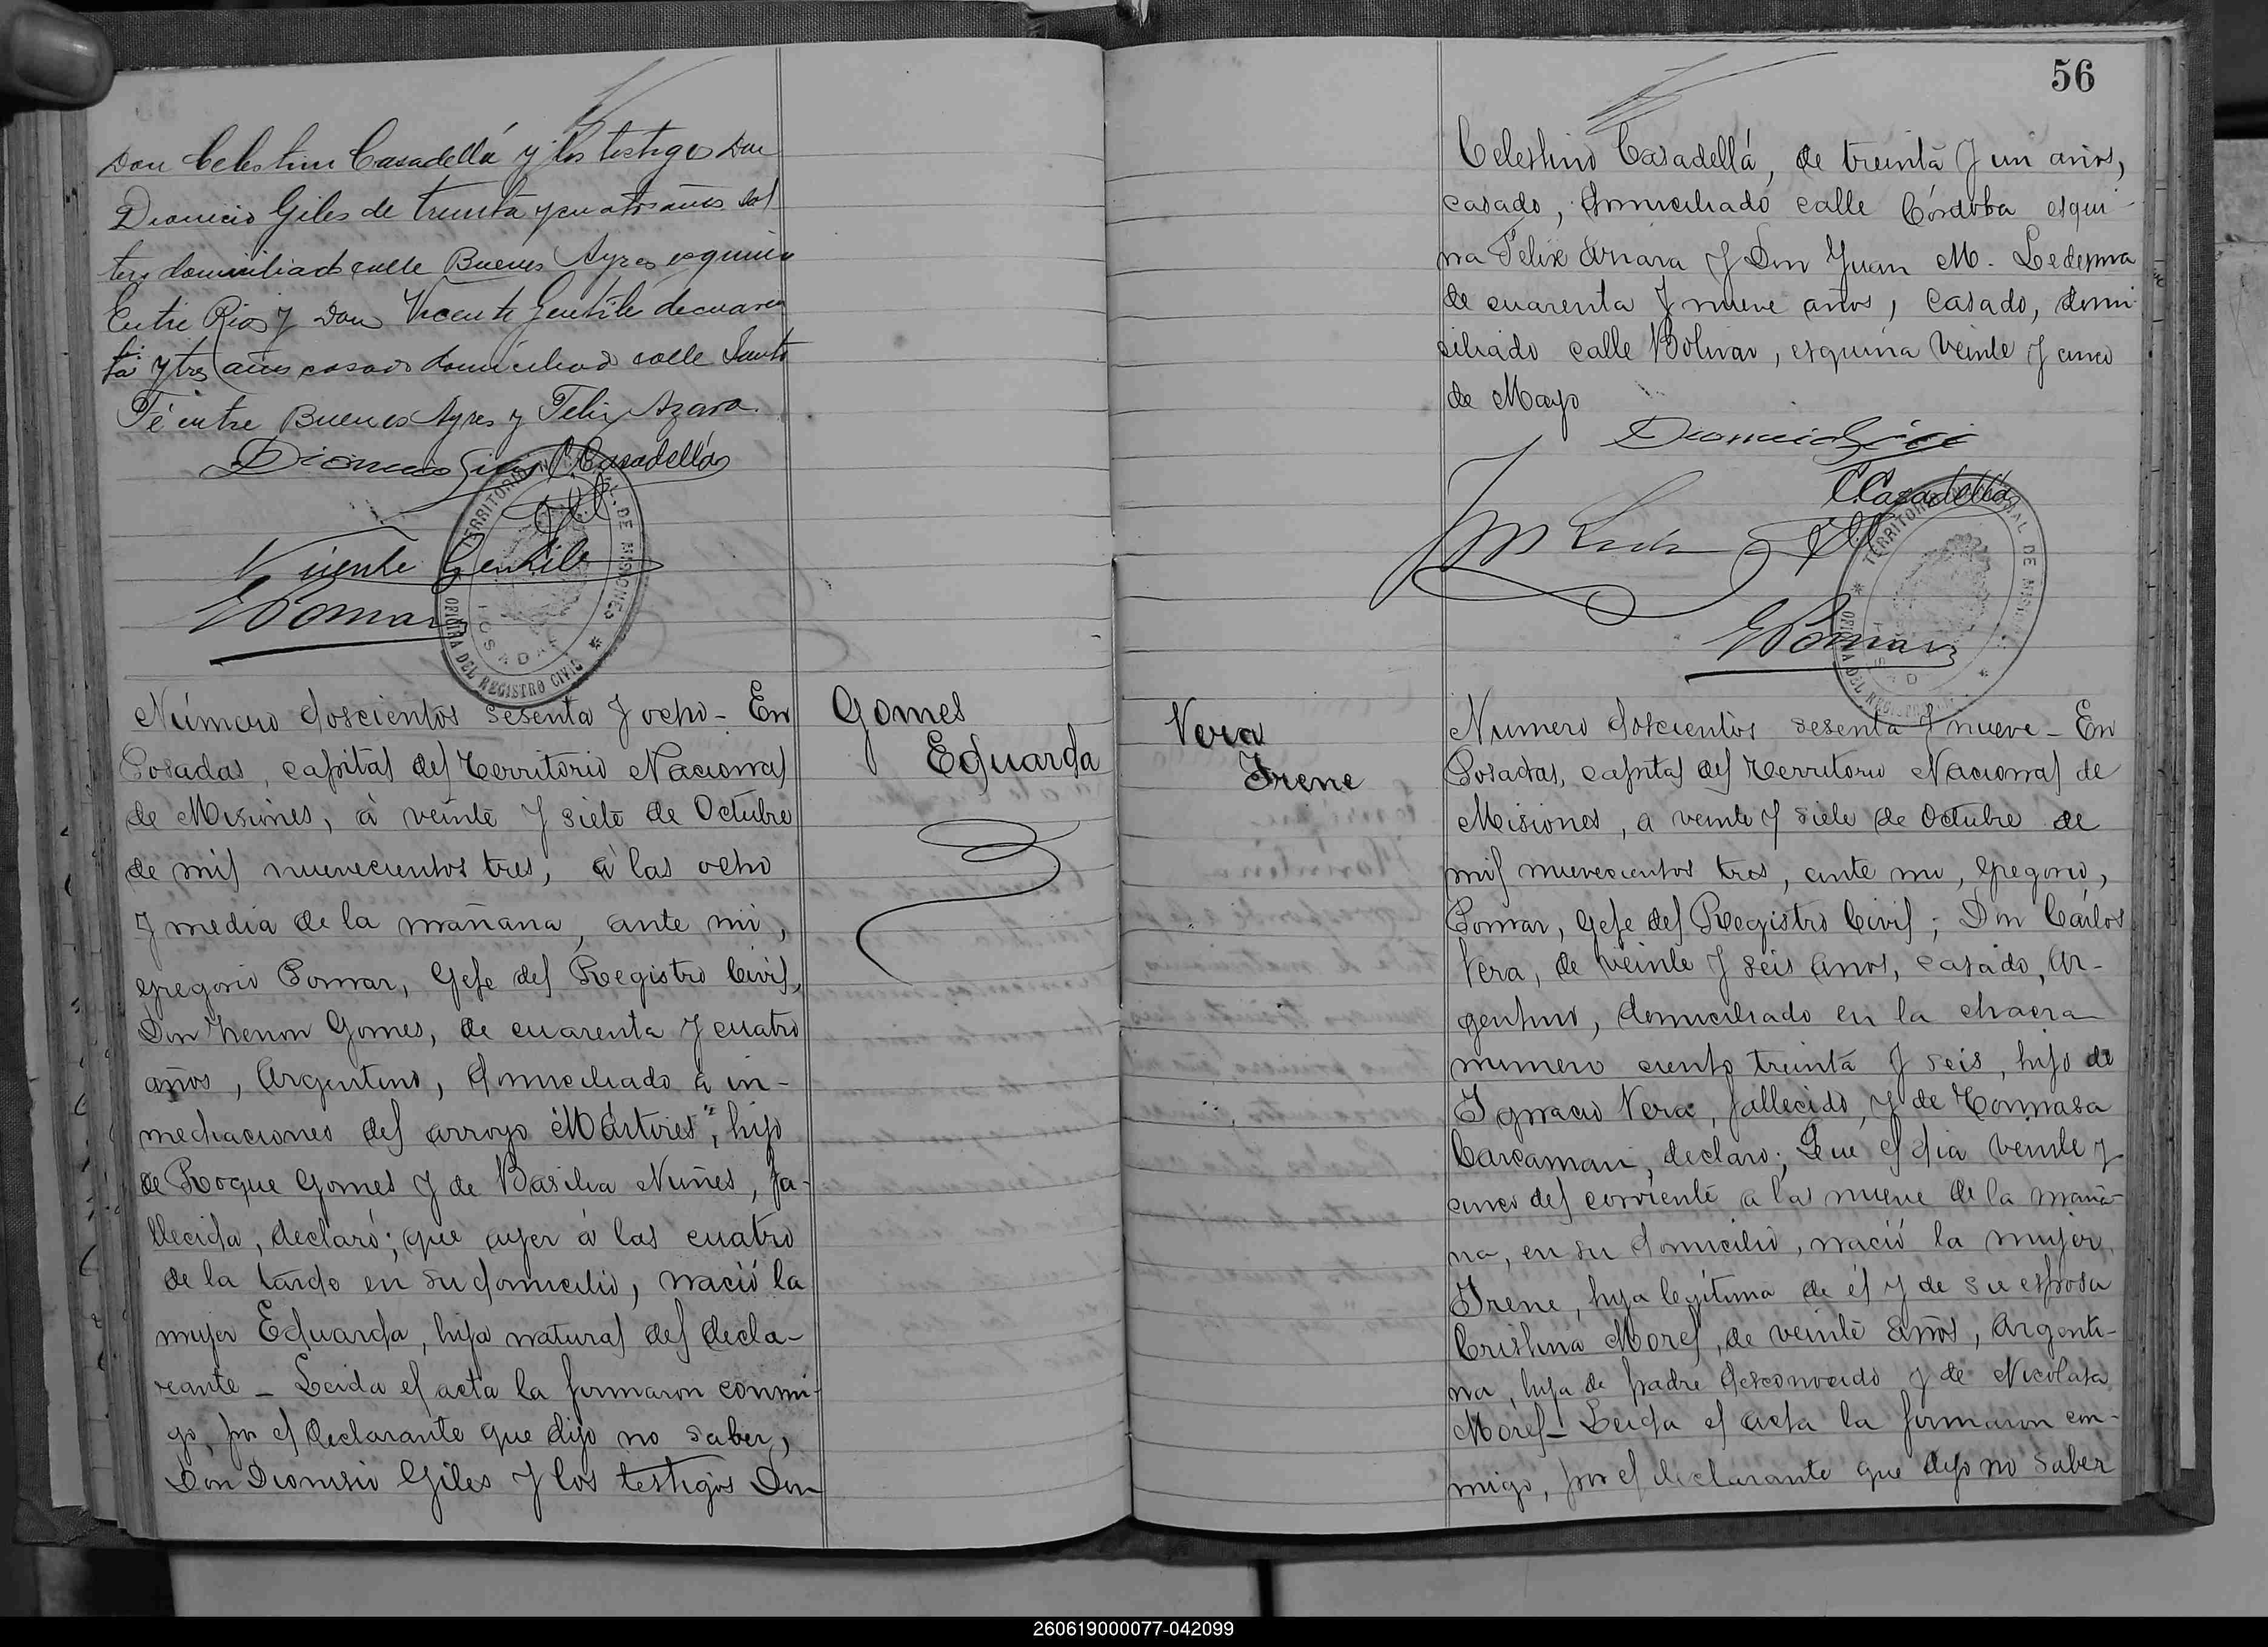 Don Celestino Casadellá y los testigos Don
Dionicio Giles de treinta y cuatro años sol
tero domiciliado calle Buenos Ayres esquina
Entre Rios y Don Vicente Gentile de cuaren
ta y tres años casado domiciliado calle Santa
Fé entre Buenos Ayres y Felix Azara.
Dionicio Giles C Casadellá
Vicente Gentile
G Pomar
TERRITORIO NACIONAL DE MISIONES
POSADAS
OFICINA DEL REGISTRO CIVIL
Número doscientos sesenta y ocho - En
Posadas, capital del Territorio Nacional
de Misiones, á veinte y siete de Octubre
de mil nuevecientos tres, á las ocho
y media de la mañana, ante mi,
Gregorio Pomar, Gefe del Registro Civil,
Don Zenon Gomes, de cuarenta y cuatro
años, Argentino, domiciliado á in-
mediaciones del arroyo "Mártires", hijo
de Roque Gomes y de Basilia Nuñes, fa-
llecida, declaró; que ayer á las cuatro
de la tarde en su domicilio, nació la
mujer Eduarda, hija natural del decla-
rante - Leida el acta la firmaron conmi-
go, por el declarante que dijo no saber,
Don Dionisio Giles y los testigos Don
Gomes
Eduarda
56
Celestino Casadellá, de treinta y un años,
casado, domiciliado calle Córdoba esqui-
na Felix Azara y Don Juan M. Ledesma
de cuarenta y nueve años, casado, domi-
ciliado calle Bolivar, esquina Veinte y cinco
de Mayo
Dionicio Giles
C Casadellá
G Pomar
TERRITORIO NACIONAL DE MISIONES
OFICINA DEL REGISTRO CIVIL
Vera
Irene
Numero doscientos sesenta y nueve - En
Posadas, capital del Territorio Nacional de
Misiones, a veinte y siete de Octubre de
mil nuevecientos tres, ante mi, Gregorio,
Pomar, Gefe del Registro Civil; Don Cárlos
Vera, de veinte y seis años, casado, Ar-
gentino, domiciliado en la chacra
numero ciento treinta y seis, hijo de
Ignacio Vera, fallecido, y de Tommasa
Carcaman, declaró; Que el dia veinte y
cinco del corriente a las nueve de la maña-
na, en su domicilio, nació la mujer
Irene, hija legitima de él y de su esposa
Cristina Morel, de veinte años, Argenti-
na, hija de padre desconocido y de Nicolasa
Morel - Leida el acta la firmaron con-
migo, por el declarante que dijo no saber
260619000077-042099